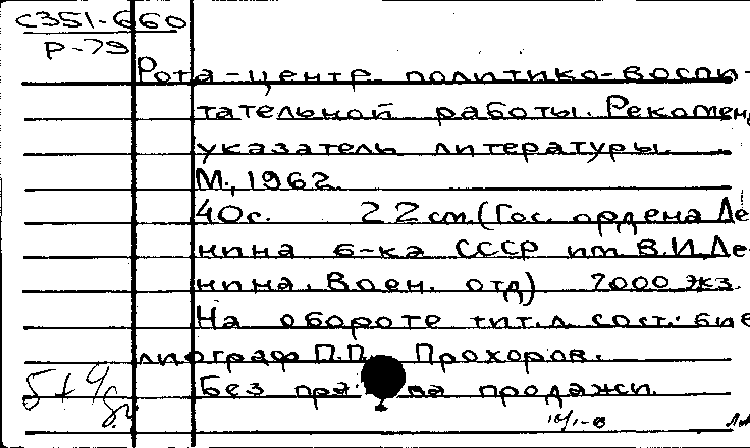 С351-660
Р-79
Рота-центр политико-воспи-
тательной работы. Рекоменд
указатель литературы.
М., 1962.
40с. 22 см. (Гос. ордена Ле
нина б-ка СССР им. В.И. Ле
нина. Воен. отд) 7000 экз.
На обороте тит. л. сост.: биб
лиограф П.П. Прохоров.
Без пра ва продажи.